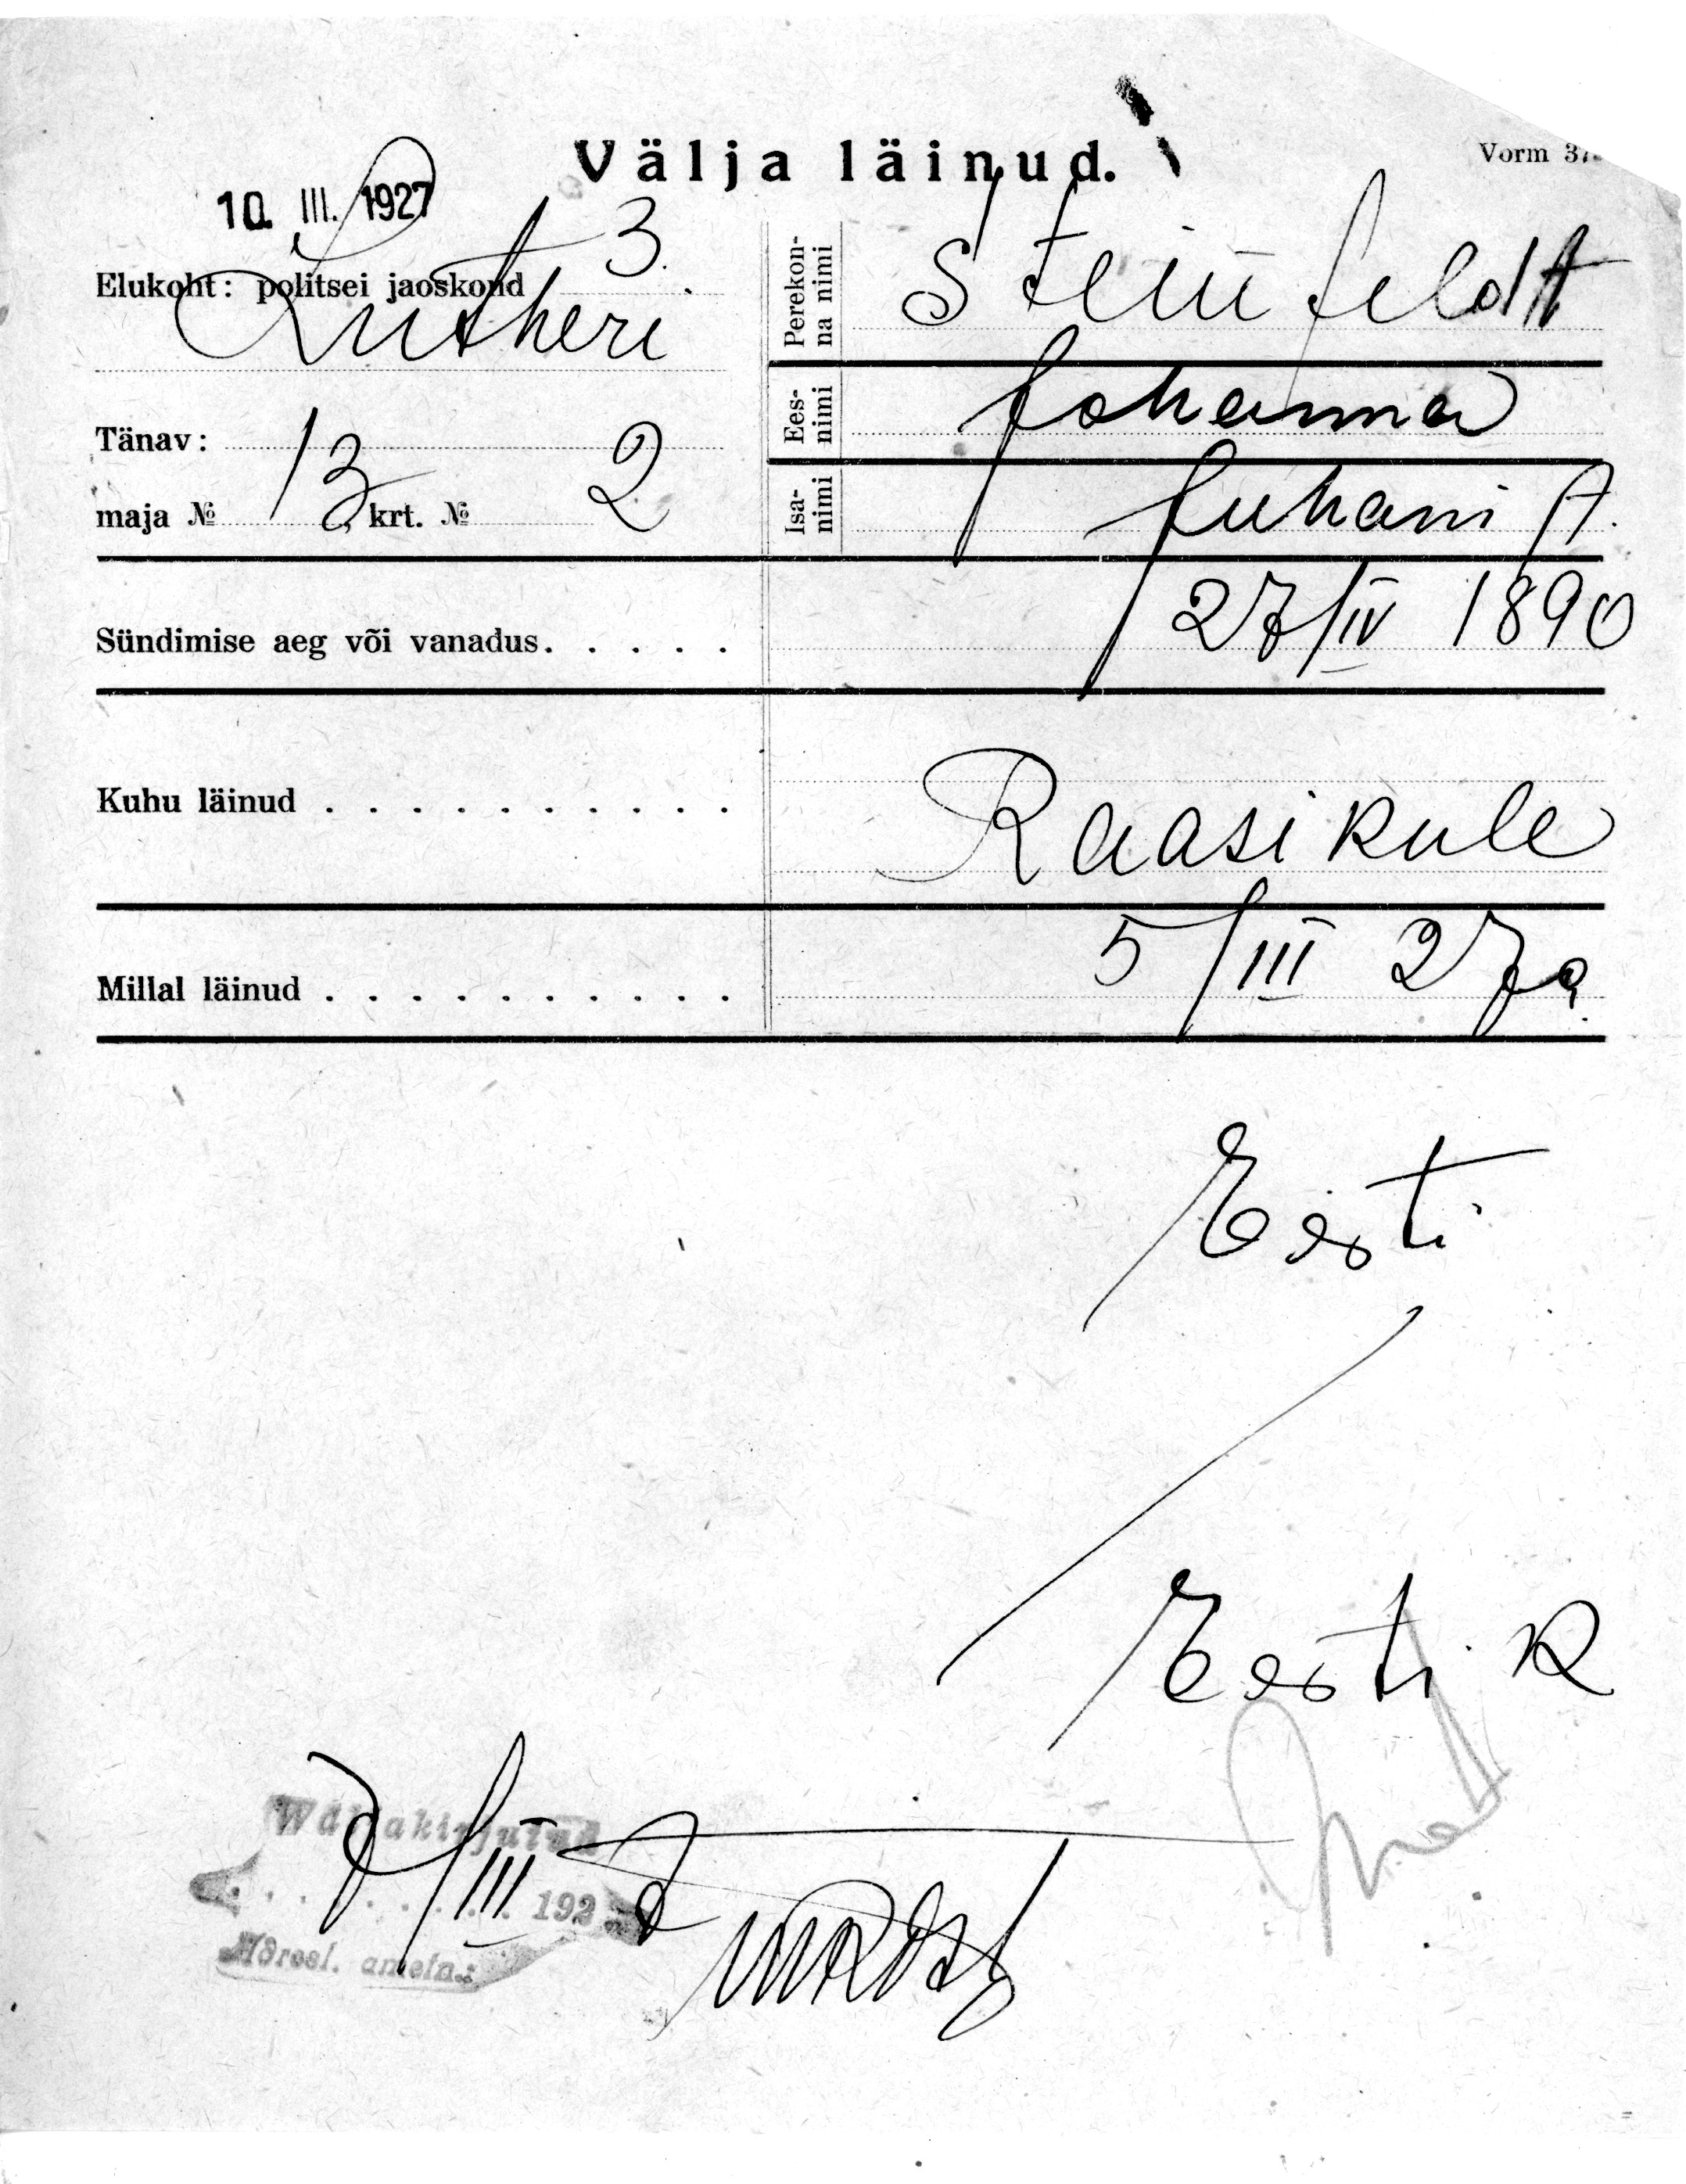 Välja läinud.
Vorm 37
10. III. 1927
Elukoht: politsei jaoskond 3.
Lutheri
Tänav:
maja № 13, krt. № 2
Perekonna nimi Steinfeldt
Eesnimi Johanna
Isanimi Juhani t.
Sündimise aeg või vanadus. . . . . 27/IV 1890
Kuhu läinud . . . . . . . . . . Raasikule
Millal läinud . . . . . . . . . . 5/III 27 a.
Eesti
Eesti K
Wäljakirjutud
7/III 1927
Adressl. ametn.: